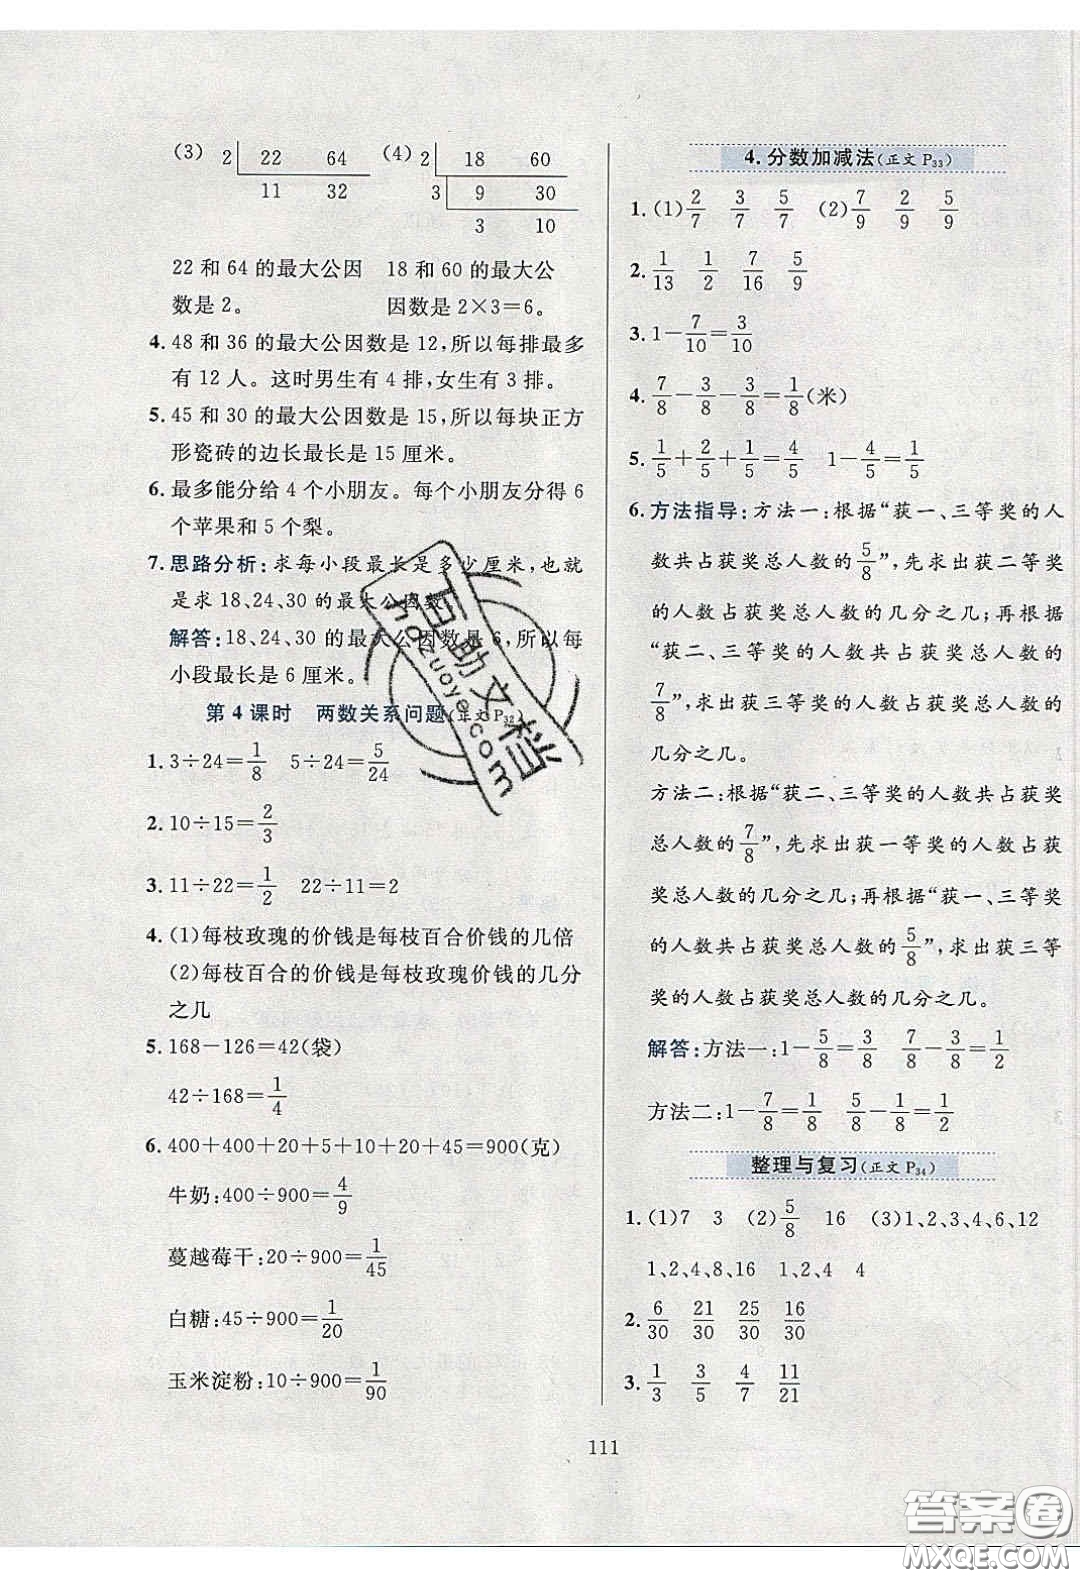 (3) 2 22 64
11 32
(4) 2 18 60
3 9 30
3 10
22 和 64 的最大公因
数是 2。
18 和 60 的最大公
因数是 2×3=6。
4. 48 和 36 的最大公因数是 12,所以每排最多
有 12 人。这时男生有 4 排,女生有 3 排。
5. 45 和 30 的最大公因数是 15,所以每块正方
形瓷砖的边长最长是 15 厘米。
6. 最多能分给 4 个小朋友。每个小朋友分得 6
个苹果和 5 个梨。
7. 思路分析:求每小段最长是多少厘米,也就
是求 18、24、30 的最大公因数。
解答:18、24、30 的最大公因数是 6,所以每
小段最长是 6 厘米。
第 4 课时 两数关系问题(正文 P32)
1. 3÷24=1/8 5÷24=5/24
2. 10÷15=2/3
3. 11÷22=1/2 22÷11=2
4. (1)每枝玫瑰的价钱是每枝百合价钱的几倍
(2)每枝百合的价钱是每枝玫瑰价钱的几分
之几
5. 168-126=42(袋)
42÷168=1/4
6. 400+400+20+5+10+20+45=900(克)
牛奶:400÷900=4/9
蔓越莓干:20÷900=1/45
白糖:45÷900=1/20
玉米淀粉:10÷900=1/90
4. 分数加减法(正文 P33)
1. (1)2/7 3/7 5/7 (2)7/9 2/9 5/9
2. 1/13 1/2 7/16 5/9
3. 1-7/10=3/10
4. 7/8-3/8-3/8=1/8(米)
5. 1/5+2/5+1/5=4/5 1-4/5=1/5
6. 方法指导:方法一:根据“获一、三等奖的人
数共占获奖总人数的5/8”,先求出获二等奖
的人数占获奖总人数的几分之几;再根据
“获二、三等奖的人数共占获奖总人数的
7/8”,求出获三等奖的人数占获奖总人数的
几分之几。
方法二:根据“获二、三等奖的人数共占获奖
总人数的7/8”,先求出获一等奖的人数占获
奖总人数的几分之几;再根据“获一、三等奖
的人数共占获奖总人数的5/8”,求出获三等
奖的人数占获奖总人数的几分之几。
解答:方法一:1-5/8=3/8 7/8-3/8=1/2
方法二:1-7/8=1/8 5/8-1/8=1/2
整理与复习(正文 P34)
1. (1)7 3 (2)5/8 16 (3)1、2、3、4、6、12
1、2、4、8、16 1、2、4 4
2. 6/30 21/30 25/30 16/30
3. 1/3 3/5 4/7 11/21
111
百助文档
答案圈
MXQE.COM